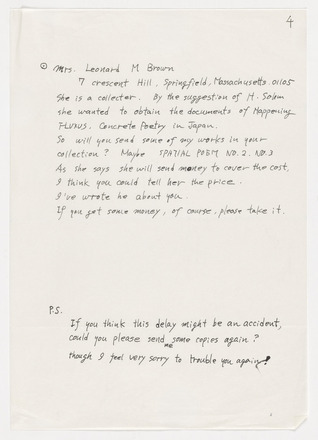 4
② Mrs. Leonard M Brown
7 crescent Hill, Springfield, Massachusetts. 01105
She is a collecter. By the suggestion of H. Solom
she wanted to obtain the documents of Happening
FLUXUS. Concrete Poetry in Japan.
So will you send some of my works in your
collection? Maybe SPATIAL POEM NO.2. NO.3
As she says she will send money to cover the cost.
I think you could tell her the price.
I've wrote he about you.
If you get some money, of course, please take it.
P.S.
If you think this delay might be an accident,
could you please send me some copies again?
though I feel very sorry to trouble you again!